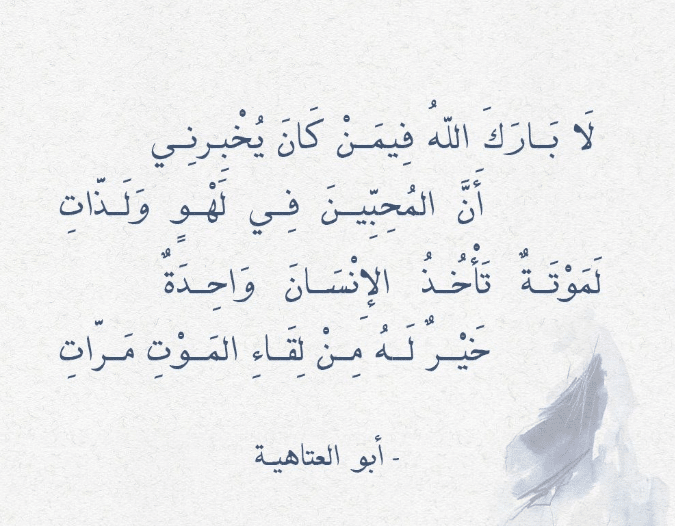 لَا بَـارَكَ اللّهُ فِيمَـنْ كَانَ يُخْبِـرنِـي
أَنَّ المُحِبِّيـنَ فِـي لَهْـوٍ وَلَـذّاتِ
لَمَوْتَـةٌ تَأْخُـذُ الإِنْسَـانَ وَاحِـدَةٌ
خَيْـرٌ لَـهُ مِـنْ لِقَـاءِ المَـوْتِ مَـرّاتِ
- أبو العتاهيـة